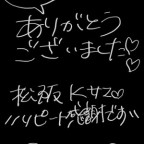 ありがとう
ございました♡♡
松阪 Kサマ♡
〃リピート感謝です〃